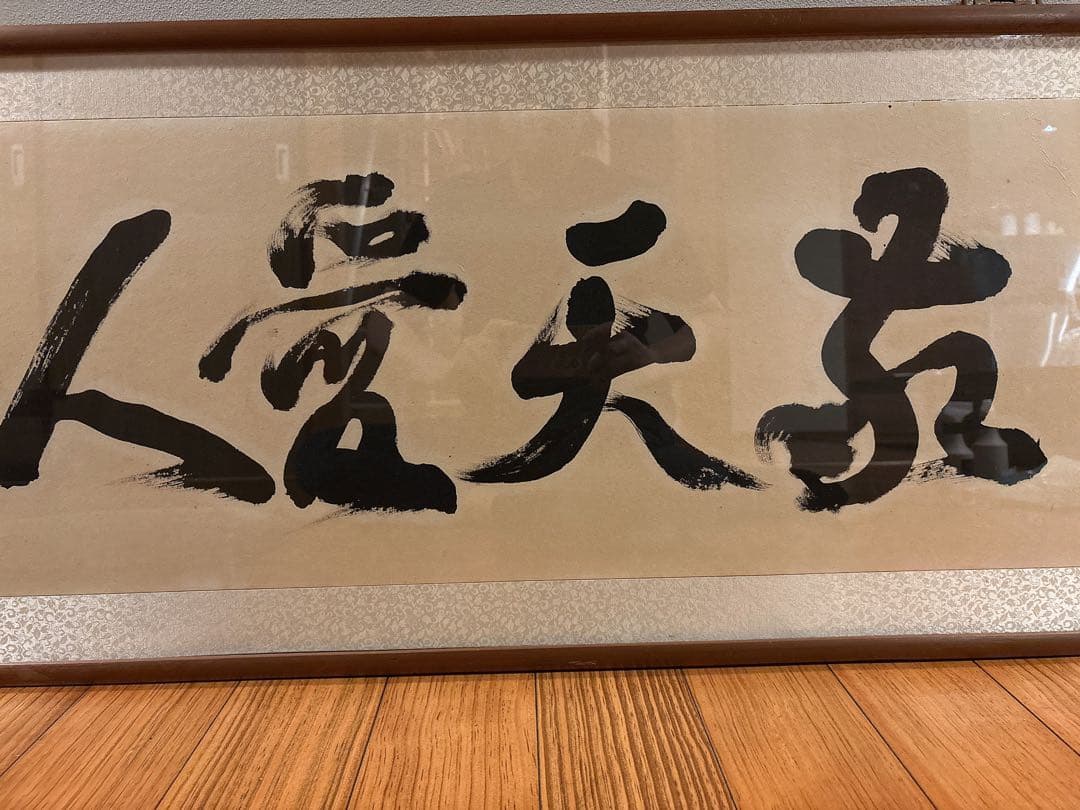 敬天愛人